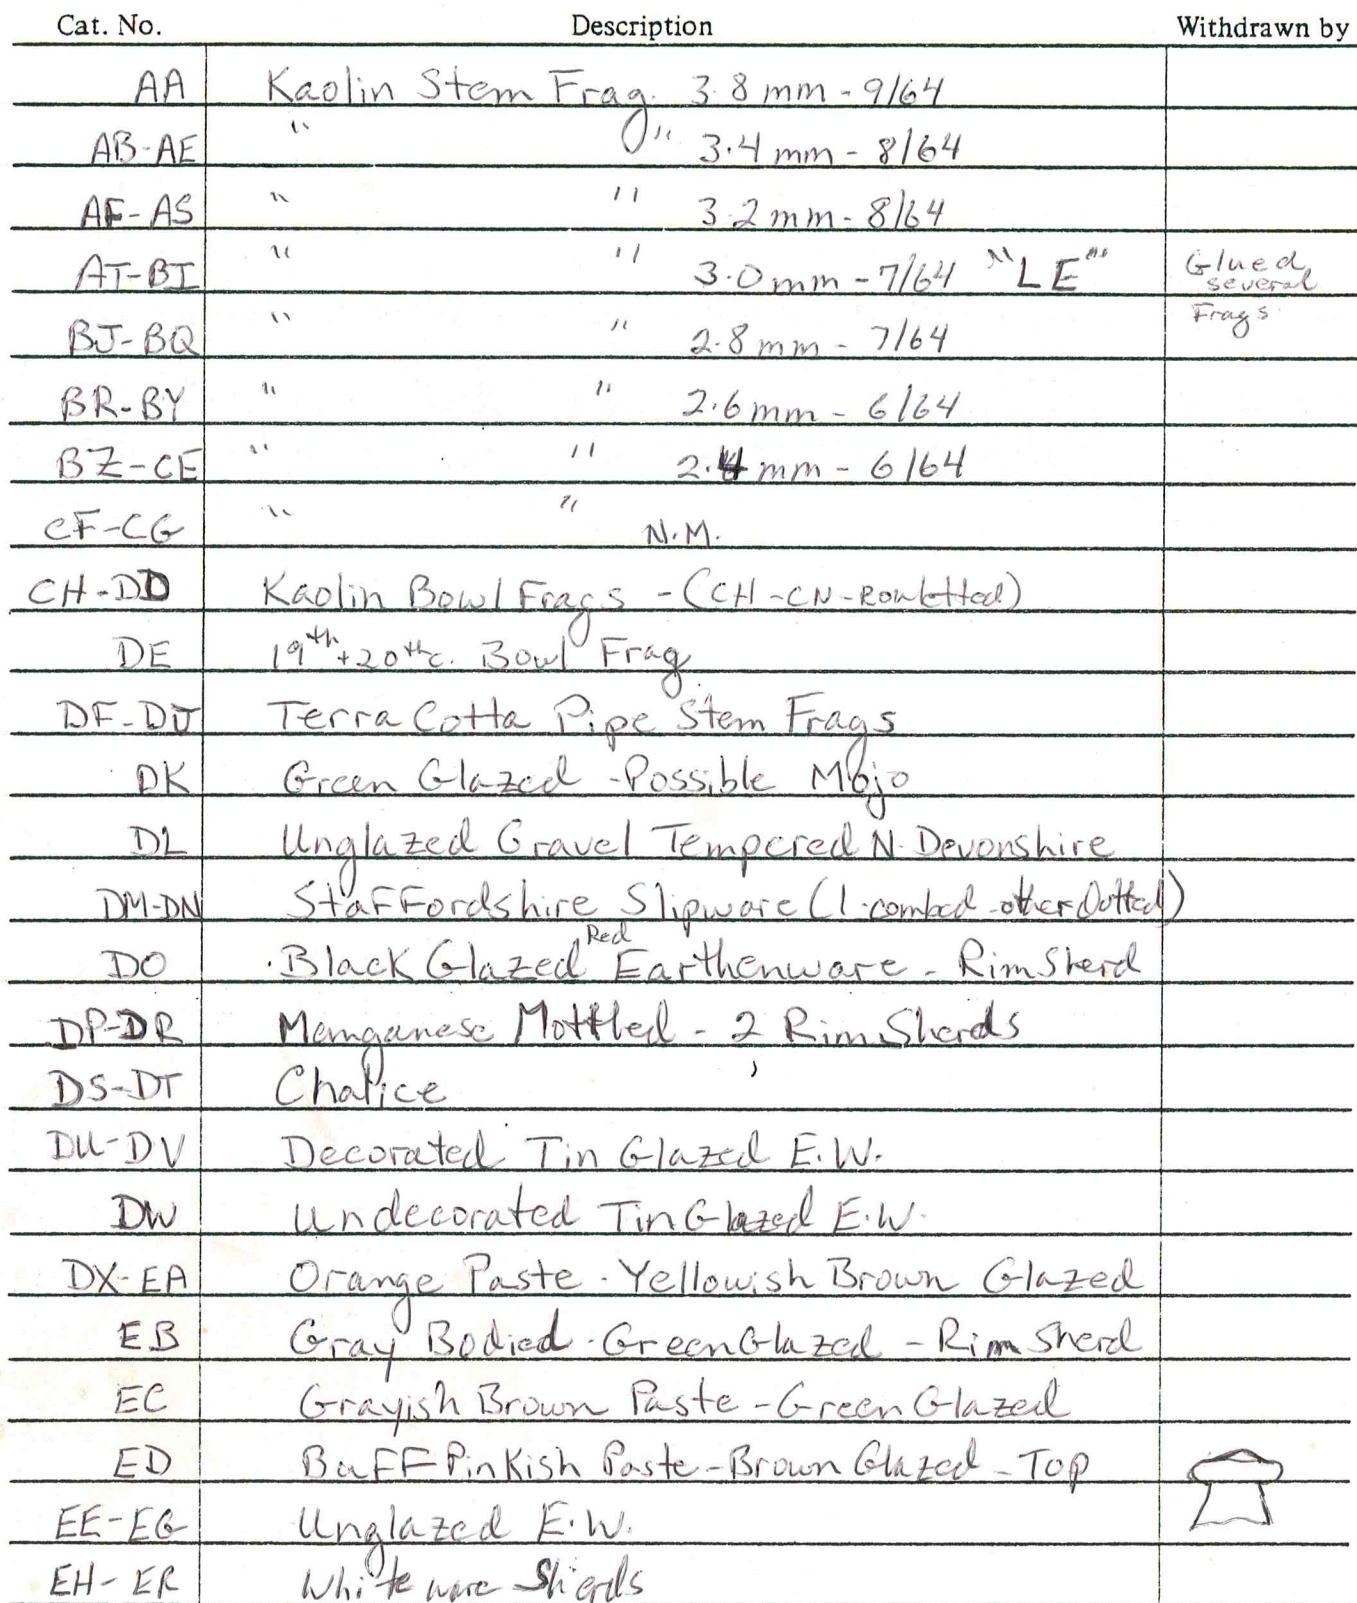 Cat. No. Description Withdrawn by
AA Kaolin Stem Frag. 3.8 mm - 9/64
AB-AE " " 3.4 mm - 8/64
AF-AS " " 3.2 mm - 8/64
AT-BI " " 3.0 mm - 7/64 "LE" Glued several
BJ-BQ " " 2.8 mm - 7/64 Frags
BR-BY " " 2.6 mm - 6/64
BZ-CE " " 2.4 mm - 6/64
CF-CG " " N.M.
CH-DD Kaolin Bowl Frags - (CH-CN-Rouletted)
DE 19th + 20th c. Bowl Frag
DF-DJ Terra Cotta Pipe Stem Frags
DK Green Glazed - Possible Mojo
DL Unglazed Gravel Tempered N. Devonshire
DM-DN Staffordshire Slipware (1-combed - other Dotted)
DO Black Glazed Red Earthenware - Rim Sherd
DP-DR Manganese Mottled - 2 Rim Sherds
DS-DT Chalice
DU-DV Decorated Tin Glazed E.W.
DW Undecorated Tin Glazed E.W.
DX-EA Orange Paste - Yellowish Brown Glazed
EB Gray Bodied - Green Glazed - Rim Sherd
EC Grayish Brown Paste - Green Glazed
ED Buff Pinkish Paste - Brown Glazed - Top
EE-EG Unglazed E.W.
EH-ER Whiteware Sherds